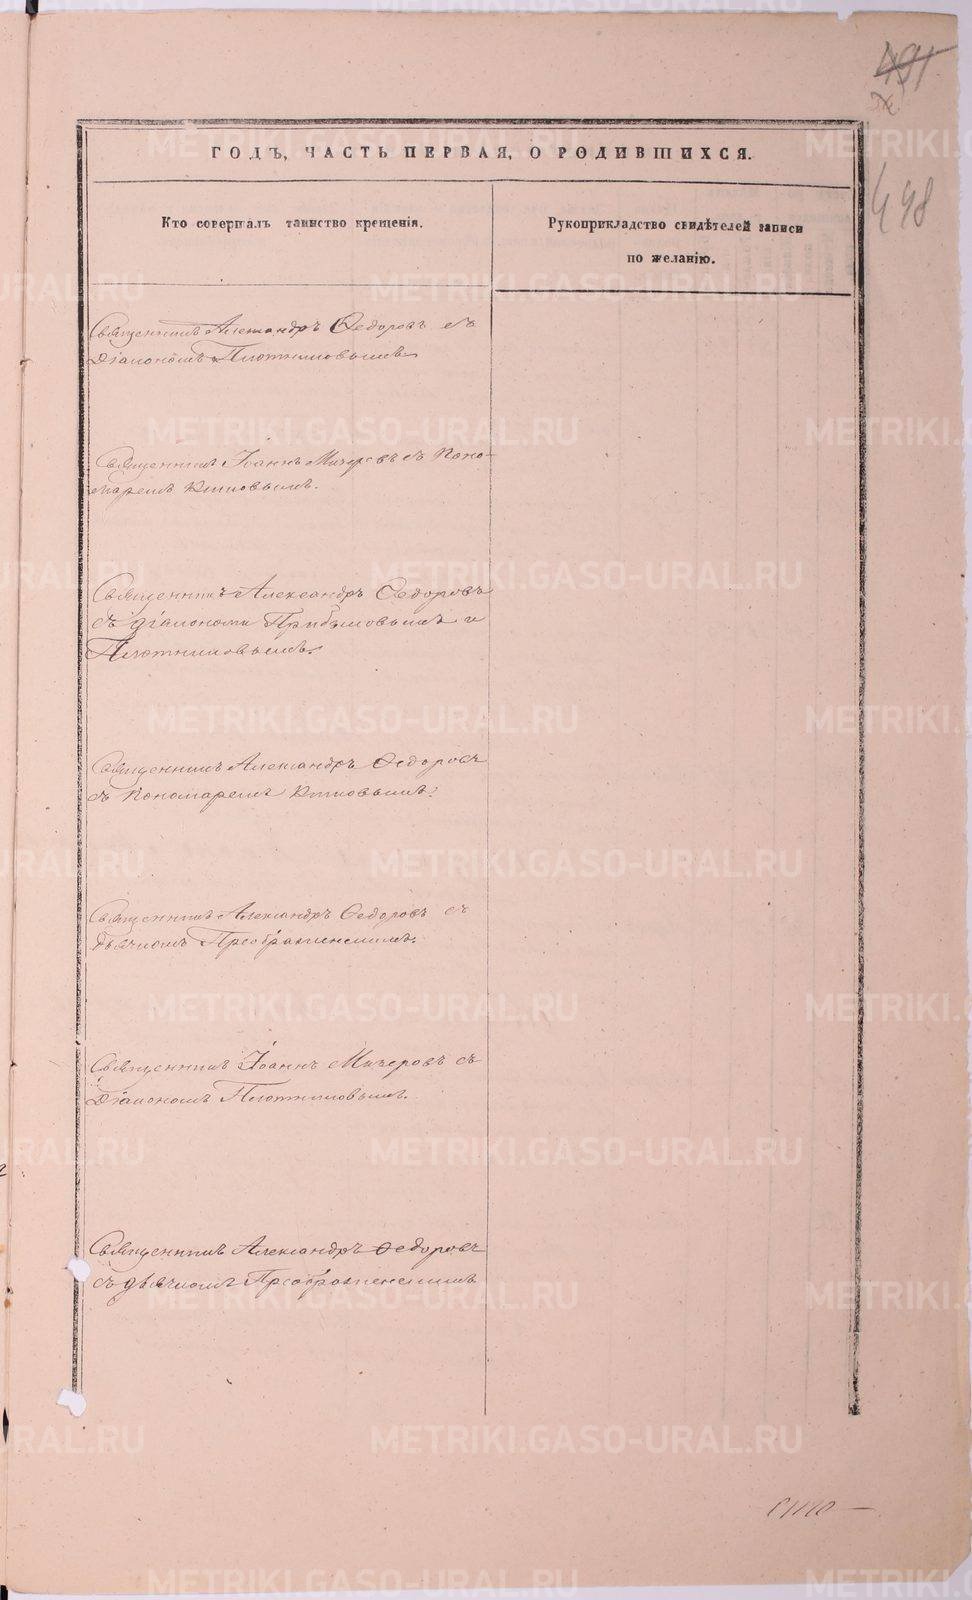 491
498
ГОДЪ, ЧАСТЬ ПЕРВАЯ, О РОДИВШИХСЯ.
Кто совершалъ таинство крещенія.
Рукоприкладство свидѣтелей записи
по желанію.
Священникъ Александръ Ѳедоровъ съ
Діакономъ Плотниковымъ.
Священникъ Іоаннъ Мичеровъ съ Поно-
маремъ
Священникъ Александръ Ѳедоровъ
съ діаконами Прибыловымъ и
Плотниковымъ.
Священникъ Александръ Ѳедоровъ
съ Пономаремъ
Священникъ Александръ Ѳедоровъ съ
дьячкомъ Преображенскимъ.
Священникъ Іоаннъ Мичеровъ съ
Діакономъ Плотниковымъ.
Священникъ Александръ Ѳедоровъ
съ дьячкомъ Преображенскимъ
METRIKI.GASO-URAL.RU